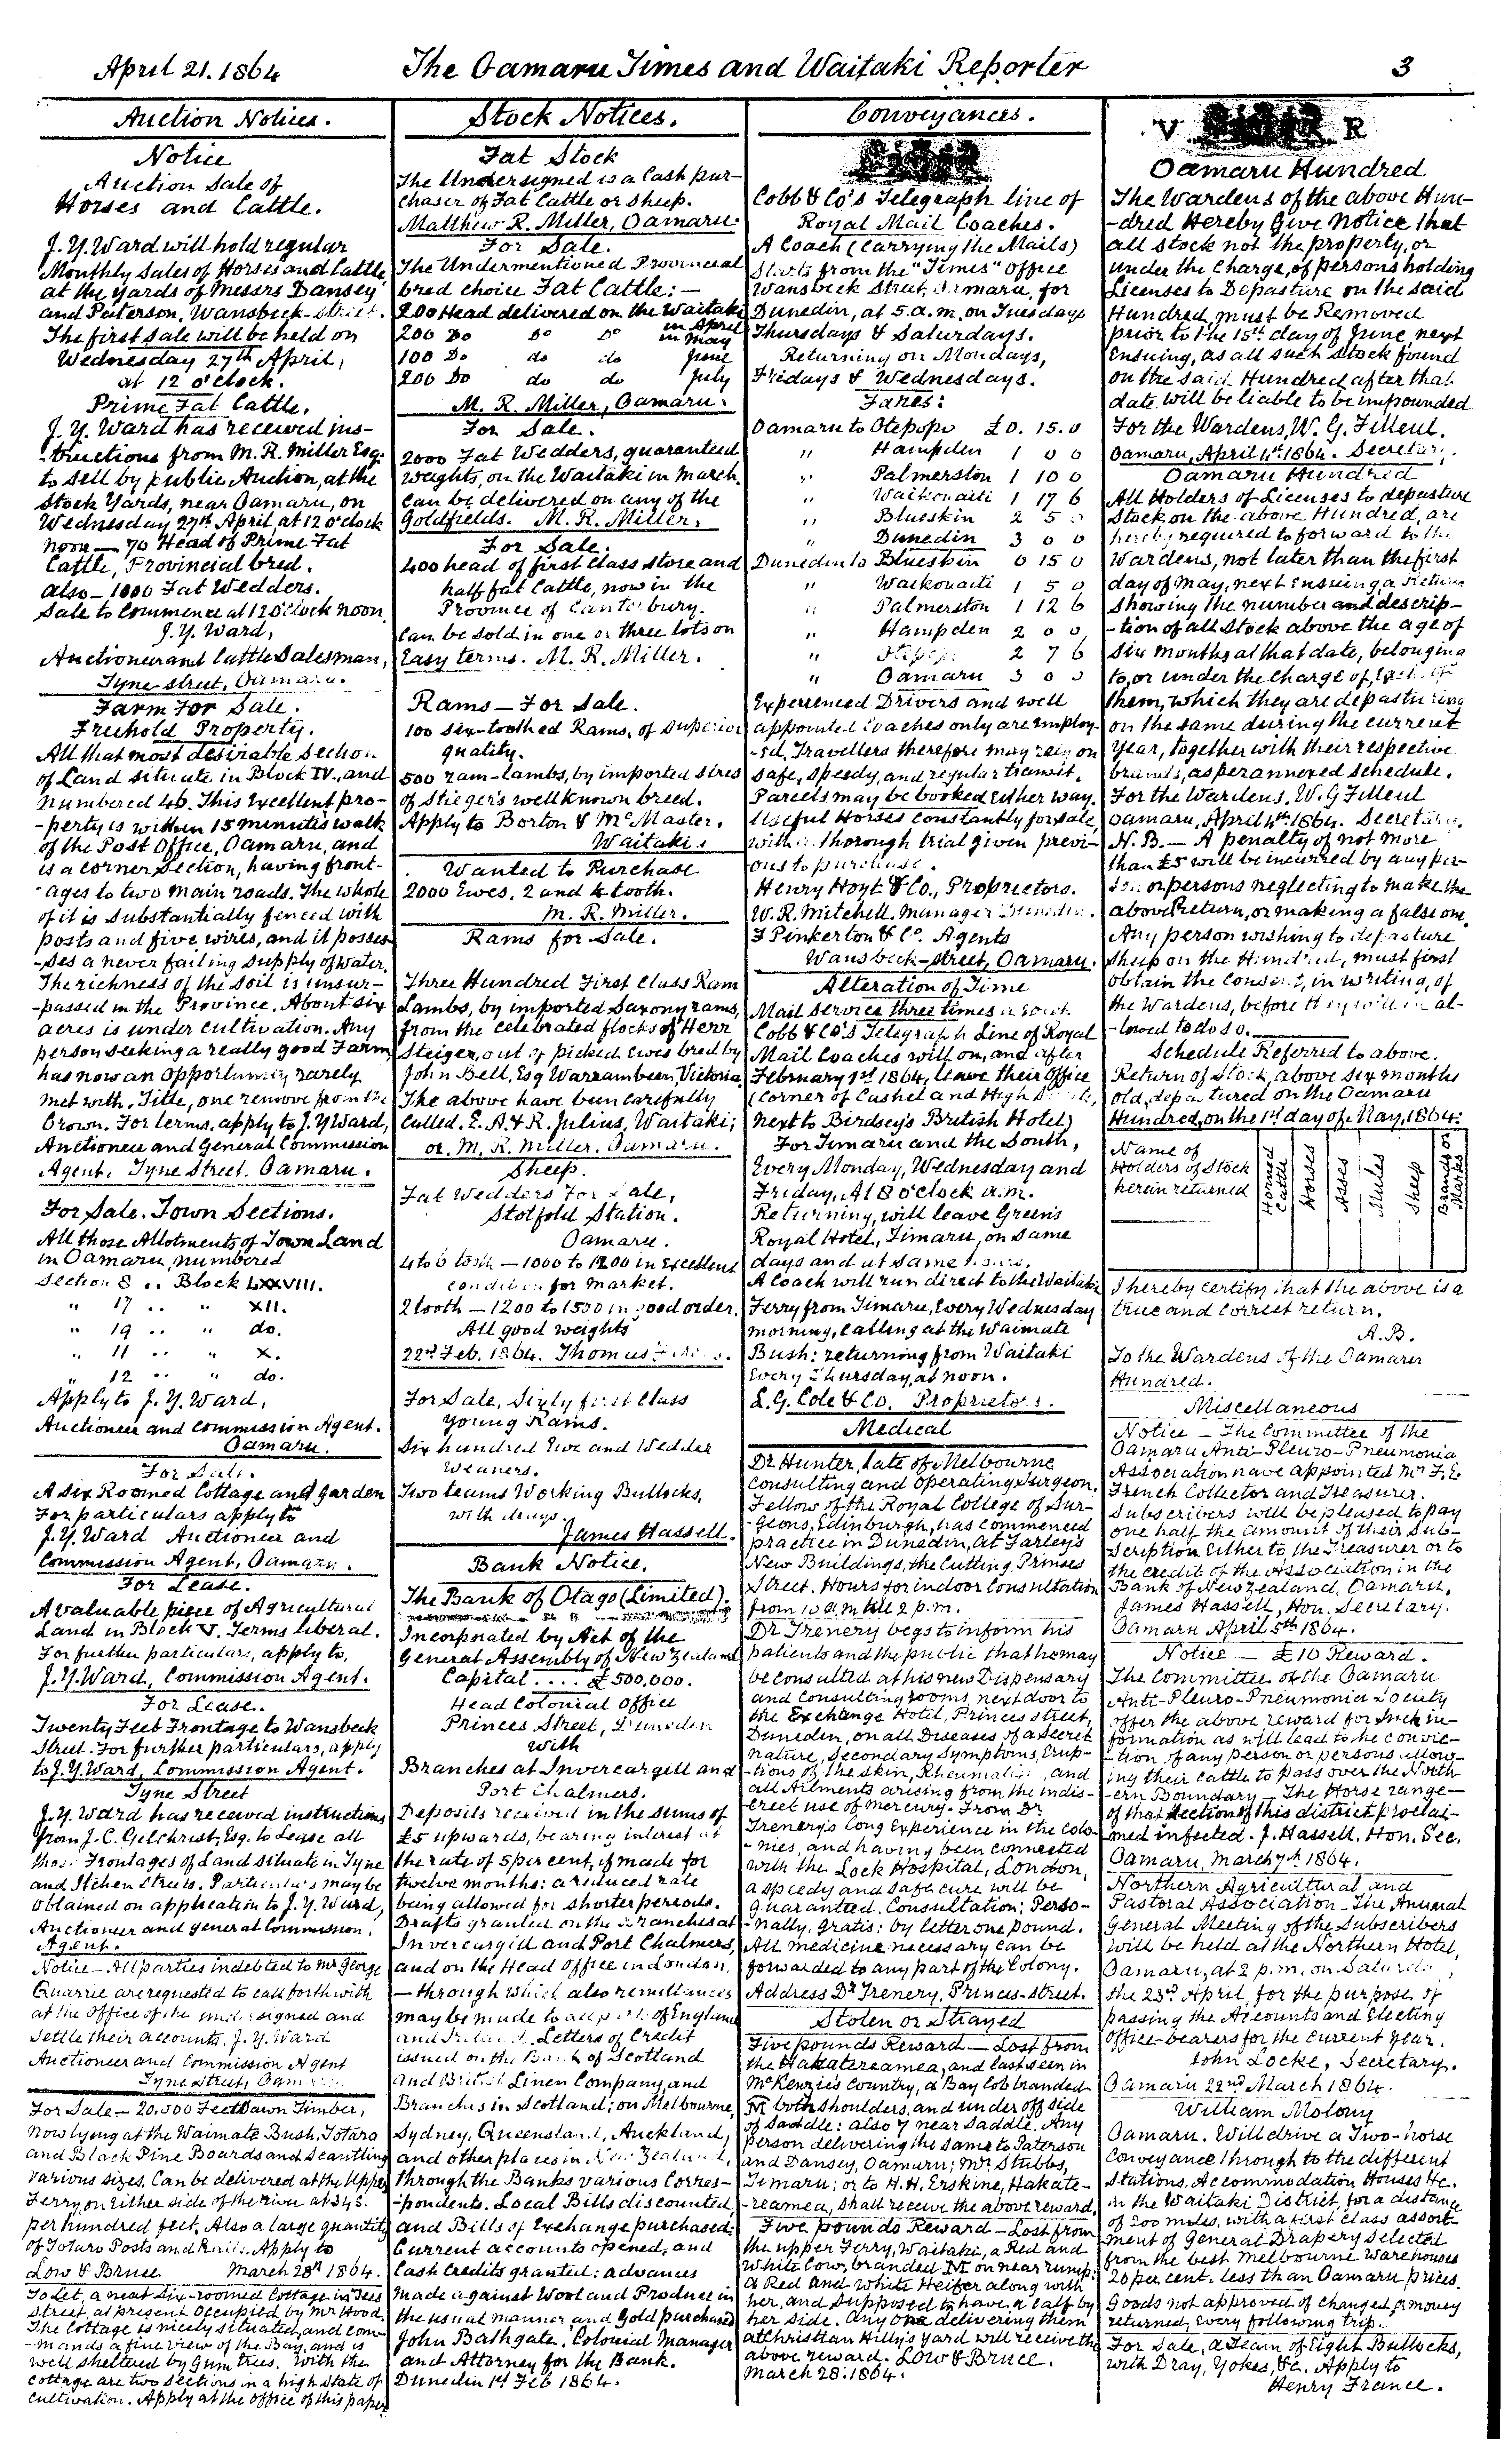 April 21. 1864
The Oamaru Times and Waitaki Reporter
3
Auction Notices.
Notice
Auction Sale of
Horses and Cattle.
J. Y. Ward will hold regular
Monthly Sales of Horses and Cattle
at the yards of Messrs Dansey
and Paterson, Wansbeck-street.
The first sale will be held on
Wednesday 27th April,
at 12 o'clock.
Prime Fat Cattle,
J. Y. Ward has received ins-
-tructions from M. R. Miller Esq:
to sell by public Auction, at the
Stock Yards, near Oamaru, on
Wednesday 27th April, at 12 o'clock
noon — 70 Head of Prime Fat
Cattle, Provincial bred.
also — 1000 Fat Wedders.
Sale to Commence at 12 o'clock noon.
J. Y. Ward,
Auctioneer and Cattle Salesman,
Tyne street, Oamaru.
Farm For Sale.
Freehold Property.
All that most desirable Section
of Land situate in Block IV., and
numbered 46. This Excellent pro-
-perty is within 15 minutes walk
of the Post Office, Oamaru, and
is a corner Section, having front-
-ages to two main roads. The whole
of it is substantially fenced with
posts and five wires, and it posses
-ses a never failing supply of water.
The richness of the soil is unsur-
-passed in the Province. About six
acres is under cultivation. Any
person seeking a really good Farm
has now an opportunity rarely
met with. Title, one remove from the
Crown. For terms, apply to J. Y Ward,
Auctioneer and General Commission
Agent. Tyne Street. Oamaru.
For Sale. Town Sections.
All those Allotments of Town Land
in Oamaru, numbered
Section 8 .. Block LXXVIII.
" 17 .. " XII.
" 19 .. " do.
" 11 .. " X.
" 12 .. " do.
Apply to J. Y. Ward,
Auctioneer and commission Agent.
Oamaru.
For Sale.
A six Roomed Cottage and garden
For particulars apply to
J. Y. Ward Auctioneer and
Commission Agent, Oamaru.
For Lease.
A valuable piece of Agricultural
Land in Block V. Terms liberal.
For further particulars, apply to,
J. Y. Ward, Commission Agent.
For Lease.
Twenty Feet Frontage to Wansbeck
Street. For further particulars, apply
to J. Y. Ward, Commission Agent.
Tyne Street
J. Y. Ward has received instructions
from J. C. Gilchrist, Esq. to Lease all
those Frontages of Land situate in Tyne
and Itchen Streets. Particulars may be
obtained on application to J. Y. Ward,
Auctioneer and general Commission.
Agent.
Notice — All parties indebted to Mr George
Quarrie are requested to call forthwith
at the office of the undersigned and
settle their accounts. J. Y. Ward
Auctioneer and Commission Agent
Tyne Street, Oamaru.
For Sale — 20.000 Feet Sawn Timber,
now lying at the Waimate Bush. Totara
and Black Pine Boards and Scantling
various sizes. Can be delivered at the Upper
Ferry, on Either side of the river at 34s.
per hundred feet. Also a large quantity
of Totara Posts and Rails. Apply to
Low & Bruce March 28th 1864.
To Let, a neat Six-roomed Cottage in Tees
Street, at present occupied by Mr Hood.
The Cottage is nicely situated, and com-
-mands a fine view of the Bay, and is
well sheltered by gum trees. With the
cottage are two sections in a high state of
cultivation. Apply at the office of this paper
Stock Notices.
Fat Stock
The Undersigned is a Cash pur-
chaser of Fat Cattle or sheep.
Matthew R. Miller, Oamaru.
For Sale.
The Undermentioned Provincial
bred choice Fat Cattle: —
200 Head delivered on the Waitaki
in April
200 Do Do Do in May
100 Do do do June
200 Do do do July
M. R. Miller, Oamaru.
For Sale.
2000 Fat Wedders, guaranteed
weights, on the Waitaki in March.
Can be delivered on any of the
Goldfields. M. R. Miller,
For Sale.
400 head of first class store and
half fat Cattle, now in the
Province of Canterbury.
Can be sold in one or three lots on
Easy terms. M. R. Miller.
Rams — For Sale.
100 six-toothed Rams, of superior
quality.
500 ram-lambs, by imported sires
of Stieger's well known breed.
Apply to Borton & McMaster.
Waitaki.
Wanted to Purchase
2000 Ewes. 2 and 4 tooth.
M. R. Miller.
Rams for Sale.
Three Hundred First Class Ram
Lambs, by imported Saxony rams,
from the celebrated flocks of Herr
Steiger, out of picked Ewes bred by
John Bell, Esq Warrambeen, Victoria.
The above have been carefully
culled. E. A & R. Julius, Waitaki;
or. M. R. Miller. Oamaru.
Sheep.
Fat Wedders For Sale,
Stotfold Station.
Oamaru.
4 to 6 tooth — 1000 to 1200 in Excellent
condition for market.
2 tooth — 1200 to 1500 in good order.
All good weights
22nd Feb. 1864. Thomas
For Sale, Sixty first Class
Young Rams.
Six hundred Ewe and Wedder
Weaners.
Two teams Working Bullocks,
with drays.
James Hassell.
Bank Notice.
The Bank of Otago (Limited).
Incorporated by Act of the
General Assembly of New Zealand
Capital .... £500,000.
Head Colonial Office
Princes Street, Dunedin
with
Branches at Invercargill and
Port Chalmers.
Deposits received in the sums of
£5 upwards, bearing interest at
the rate of 5 per cent, if made for
twelve months: a reduced rate
being allowed for shorter periods.
Drafts granted on the Branches at
Invercargill and Port Chalmers,
and on the Head Office in London.
— through which also remittances
may be made to all parts of England
and Ireland. Letters of Credit
issued on the Bank of Scotland
and British Linen Company, and
Branches in Scotland; on Melbourne,
Sydney, Queensland, Auckland,
and other places in New Zealand,
through the Banks various Corres-
-pondents. Local Bills discounted,
and Bills of Exchange purchased:
Current accounts opened, and
Cash Credits granted: advances
made against Wool and Produce in
the usual manner and Gold purchased
John Bathgate. Colonial Manager
and Attorney for the Bank.
Dunedin 1st Feb 1864.
Conveyances.
Cobb & Co's Telegraph line of
Royal Mail Coaches.
A Coach (carrying the Mails)
Starts from the "Times" Office
Wansbeck Street, Oamaru, for
Dunedin, at 5. a.m. on Tuesdays
Thursdays & Saturdays.
Returning on Mondays,
Fridays & Wednesdays.
Fares:
Oamaru to Otepopo £0. 15. 0
" Hampden 1 0 0
" Palmerston 1 10 0
" Waikouaiti 1 17 6
" Blueskin 2 5 0
" Dunedin 3 0 0
Dunedin to Blueskin 0 15 0
" Waikouaiti 1 5 0
" Palmerston 1 12 6
" Hampden 2 0 0
" Otepopo 2 7 6
" Oamaru 3 0 0
Experienced Drivers and well
appointed Coaches only are Employ-
-Ed. Travellers therefore may rely on
safe, speedy, and regular transit.
Parcels may be booked Either way.
Useful Horses constantly for sale,
with a thorough trial given previ-
ous to purchase.
Henry Hoyt & Co., Proprietors.
W. R. Mitchell. Manager Dunedin.
F Pinkerton & Co. Agents
Wansbeck-street, Oamaru.
Alteration of Time
Mail service three times a week
Cobb & Co's Telegraph Line of Royal
Mail Coaches will on, and after
February 1st 1864, leave their office
(Corner of Cashel and High Streets,
next to Birdsey's British Hotel)
For Timaru and the South,
Every Monday, Wednesday and
Friday, At 8 o'clock a.m.
Returning, will leave Green's
Royal Hotel, Timaru, on same
days and at same hours.
A Coach will run direct to the Waitaki
Ferry from Timaru, Every Wednesday
morning, calling at the Waimate
Bush: returning from Waitaki
Every Thursday, at noon.
L. G. Cole & Co. Proprietors.
Medical
Dr Hunter, late of Melbourne
consulting and operating Surgeon,
Fellow of the Royal College of Sur-
-geons, Edinburgh, has commenced
practice in Dunedin, at Farley's
New Buildings, the Cutting, Princes
Street. Hours for indoor Consultation
from 10 a.m till 2 p.m.
Dr Trenery begs to inform his
patients and the public that he may
be consulted at his new Dispensary
and Consulting rooms, next door to
the Exchange Hotel, Princes street,
Dunedin, on all Diseases of a Secret
nature, Secondary Symptoms, Erup-
-tions of the skin, Rheumatism, and
all Ailments arising from the indis-
-creet use of mercury. From Dr
Trenery's long Experience in the colo-
-nies, and having been connected
with the Lock Hospital, London,
a speedy and safe cure will be
guaranteed. Consultation; Perso-
-nally, gratis: by letter one pound.
All medicine necessary can be
forwarded to any part of the Colony.
Address Dr Trenery, Princes-street.
Stolen or Strayed
Five pounds Reward — Lost from
the Hakatereamea, and last seen in
McKenzie's Country, a Bay Cob branded
M both shoulders, and under off side
of saddle: also 7 near saddle. Any
person delivering the same to Paterson
and Dansey, Oamaru; Mr. Stubbs,
Timaru; or to H. H. Erskine, Hakate-
-reamea, shall receive the above reward.
Five pounds Reward — Lost from
the upper Ferry, Waitaki, a Red and
White Cow, branded M on near rump:
a Red and White Heifer along with
her, and supposed to have a calf by
her side. Any one delivering them
at Christian Hilly's yard will receive the
above reward. Low & Bruce.
March 28. 1864.
V R
Oamaru Hundred
The Wardens of the above Hun-
-dred Hereby Give Notice that
all stock not the property, or
under the charge, of persons holding
Licenses to Depasture on the said
Hundred must be Removed
prior to the 15th day of June, next
Ensuing, as all such Stock found
on the said Hundred after that
date will be liable to be impounded
For the Wardens, W. G. Filleul.
Oamaru, April 4th 1864. Secretary.
Oamaru Hundred
All Holders of Licenses to depasture
Stock on the above Hundred, are
hereby required to forward to the
Wardens, not later than the first
day of May, next Ensuing, a Return
showing the number and descrip-
-tion of all Stock above the age of
six months at that date, belonging
to, or under the charge of, Each of
them, which they are depasturing
on the same during the current
year, together with their respective
brands, as per annexed schedule.
For the Wardens. W. G Filleul
Oamaru, April 4th 1864. Secretary.
N. B. — A penalty of not more
than £5 will be incurred by any per-
son or persons neglecting to make the
above Return, or making a false one.
Any person wishing to depasture
sheep on the Hundred, must first
obtain the Consent, in writing, of
the Wardens, before they will be al-
-lowed to do so.
Schedule Referred to above.
Return of Stock, above six months
old, depastured on the Oamaru
Hundred, on the 1st day of May, 1864:
Name of
Holders of Stock
herein returned
Horned Cattle
Horses
Asses
Mules
Sheep
Brands or Marks
I hereby certify that the above is a
true and correct return.
A. B.
To the Wardens of the Oamaru
Hundred.
Miscellaneous
Notice — The Committee of the
Oamaru Anti-Pleuro-Pneumonia
Association have appointed Mr F. E.
French Collector and Treasurer.
Subscribers will be pleased to pay
one half the amount of their Sub-
-scription Either to the Treasurer or to
the credit of the Association in the
Bank of New Zealand, Oamaru.
James Hassell, Hon. Secretary.
Oamaru April 5th 1864.
Notice — £10 Reward.
The Committee of the Oamaru
Anti-Pleuro-Pneumonia Society
offer the above reward for such in-
formation as will lead to the convic-
-tion of any person or persons allow-
ing their cattle to pass over the North
-ern Boundary — The Horse range —
of that section of this district proclai-
-med infected. J. Hassell. Hon. Sec.
Oamaru, March 7th 1864.
Northern Agricultural and
Pastoral Association — The Annual
General Meeting of the Subscribers
will be held at the Northern Hotel,
Oamaru, at 2 p.m. on Saturday,
the 23rd April, for the purpose of
passing the Accounts and Electing
office-bearers for the current year.
John Locke, Secretary.
Oamaru 22nd March 1864.
William Molony
Oamaru. Will drive a Two-horse
Conveyance through to the different
Stations, Accommodation Houses &c.
in the Waitaki District, for a distance
of 200 miles, with a first class assort-
ment of General Drapery selected
from the best Melbourne Warehouses
20 per cent. less than Oamaru prices.
Goods not approved of changed, or money
returned, Every following trip.
For Sale, a Team of Eight Bullocks,
with Dray, Yokes, &c. Apply to
Henry France.